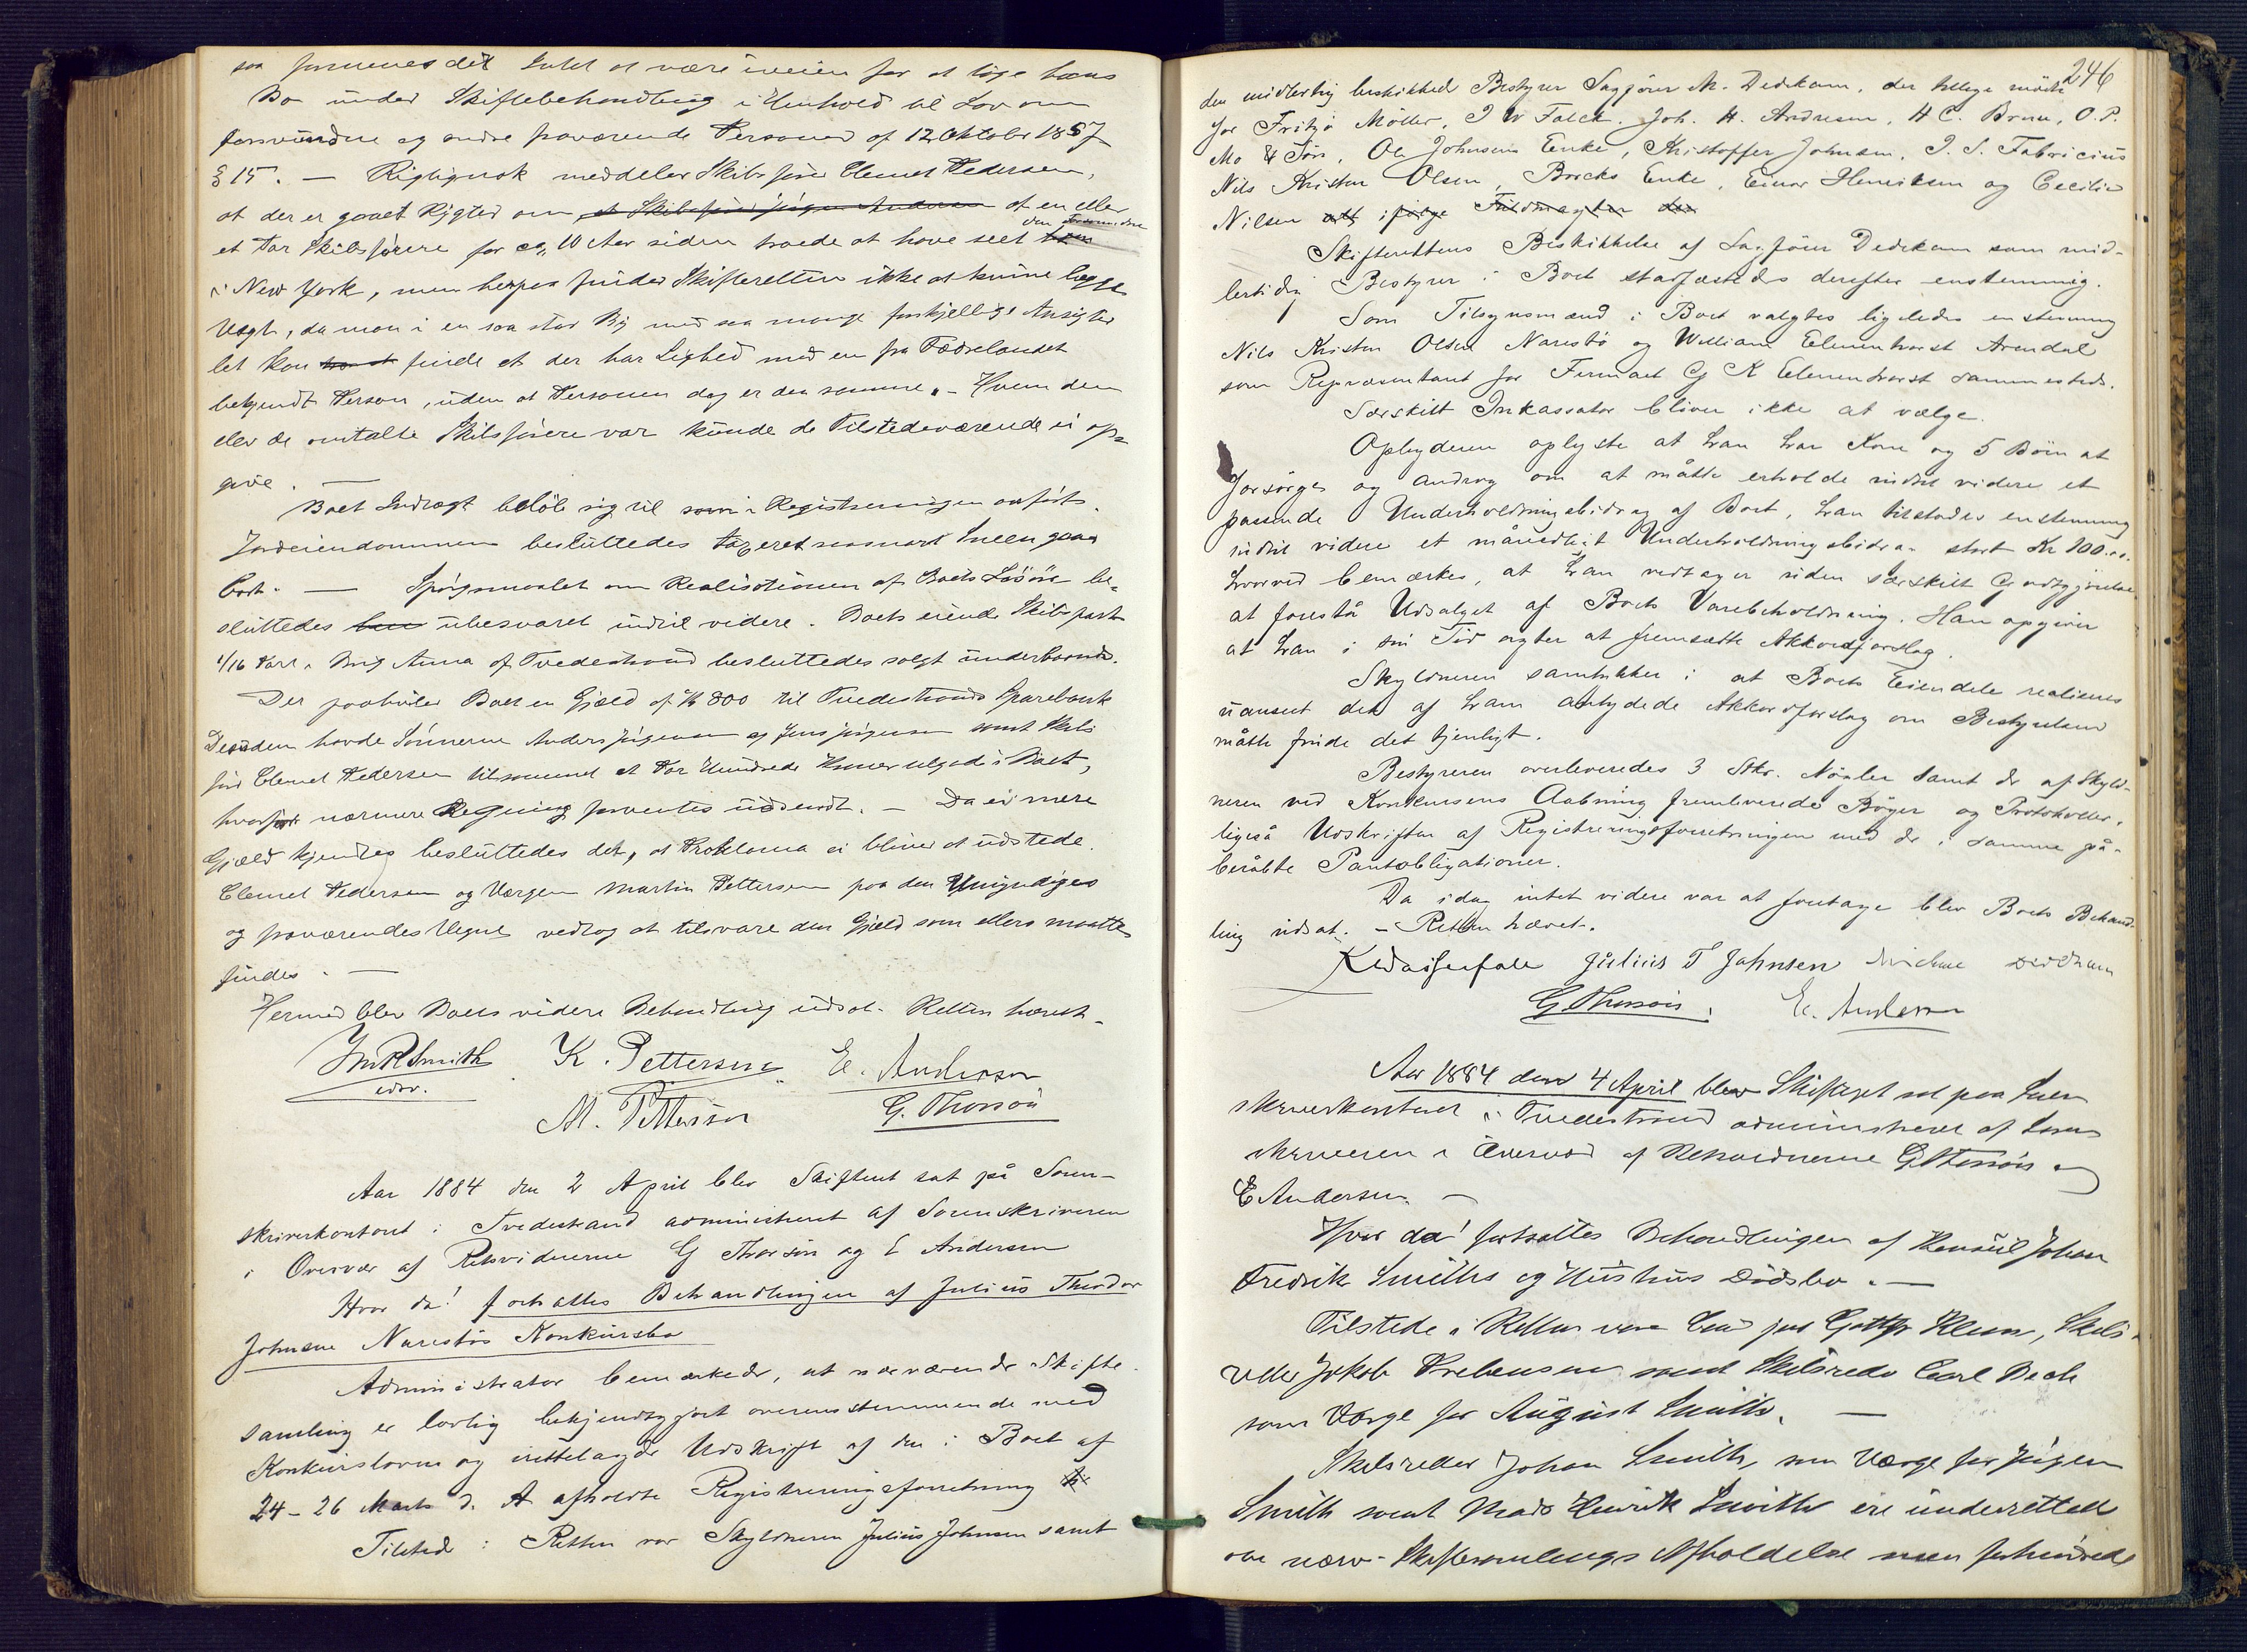 saa formenes det Intet at være iveien for at tage hans
Bo under Skiftebehandling i Henhold til Lov om
forsvundne og andre fraværende Personer af 12 Oktober 1857
§ 15. — Rigtignok meddeler Skibsfører Clemet Pedersen,
at der er gaaet Rygter om at Skibsfører Jørgen Andersen at en eller
den Forsvundne
et Par Skibsførere for ca. 10 Aar siden troede at have seet ham
i New York, men herpaa finder Skifteretten ikke at kunne lægge
Vægt, da man i en saa stor By med saa mange forskjellige Ansigter
let kan finde et der har Lighed med en fra Fædrelandet
bekjendt Person, uden at Personen dog er den samme. — Hvem den
eller de omtalte Skibsførere var kunde de Tilstedeværende ei op-
give. —
Boets Indtægt beløb sig til som i Registreringen anført.
Jordeiendommen besluttedes taxeret saasnart Sneen gaar
bort. — Spørgsmaalet om Realisationen af Boets Løsøre be-
sluttedes ubesvaret indtil videre. Boets eiende Skibspart
1/16 Part i Brig Anna af Tvedestrand besluttedes solgt underhaanden.
Der paahviler Boet en Gjæld af Kr 800 til Tvedestrands Sparebank
Desuden havde Sønnerne Anders Jørgensen og Jens Jørgensen samt Skibs
fører Clemet Pedersen tilsammen et Par Hundrede Kroner tilgode i Boet,
hvorfor nærmere Regning forventes indsendt. — Da ei mere
Gjæld kjendes besluttedes det, at Proklama ei bliver at udstede.
Clemet Pedersen og Værgen Martin Pettersen paa den Umyndiges
og fraværendes Vegne vedtog at tilsvare den Gjæld som ellers maatte
findes. —
Hermed blev Boets videre Behandling udsat. Retten hævet.
JMRSmith K. Pettersen E. Andersen
edsv.
M. Pettersen G. Thorsøn
Aar 1884 den 2 April blev Skifteret sat på Soren-
skriverkontoret i Tvedestrand administreret af Sorenskriveren
i Overvær af Retsvidnerne G Thorsøn og E Andersen
Hvor da! fortsattes Behandlingen af Julius Theodor
Johnsens Narestøs Konkursbo
Administrator bemærkede, at nærværende Skifte-
samling er lovlig bekjendtgjort overensstemmende med
Konkursloven og irettelagde Udskrift af den i Boet af
24-26 Marts d. A afholdte Registreringsforretning
Tilstede i Retten var Skyldneren Julius Johnsen samt
246
den midlertidig beskikked Bestyrer Sagfører M. Dedekam, der tillige mødte
for Fritjo Møller, J W Falck. Joh. H. Andresen, H C. Bruu, O. P.
Mo & Søn, Ole Johnsens Enke, Kristoffer Johnsen, J. S. Fabricius
Nils Kristen Olsen, Bricks Enke, Einar Henriksen og Cecilie
Nilsen alt ifølge Fuldmagter
Skifterettens Beskikkelse af Sagfører Dedekam som mid-
lertidig Bestyrer i Boet stadfæstedes derefter enstemmig.
Som Tilsynsmænd i Boet valgtes ligeledes enstemmig
Nils Kristen Olsen Narestø og William Ellenhorst Arendal
som Repræsentant for Firmaet G K Ellenhorst sammesteds.
Særskilt Inkassator bliver ikke at vælge.
Opbyderen oplyste at han har Kone og 5 Børn at
forsørge og androg om at måtte erholde indtil videre et
passende Underholdningsbidrag af Boet, han tilstodes enstemmig
indtil videre et månedligt Underholdningsbidrag stort Kr 100.00.
hvorved bemærkes, at han vedtager uden særskilt Godtgjørelse
at forestå Udsalget af Boets Varebeholdning. Han opgiver
at han i sin Tid agter at fremsætte Akkordforslag.
Skyldneren samtykker i at Boets Eiendele realiseres
uanseet det af ham antydede Akkordforslag om Bestyrelsen
måtte finde det tjenligt.
Bestyreren overleveredes 3 Stkr. Nøgler samt de af Skyld-
neren ved Konkursens Aabning fremleverede Bøger og Protokoller,
ligeså Udskriften af Registreringsforretningen med de i samme på-
beråbte Pantobligationer.
Da idag intet videre var at foretage blev Boets Behand-
ling udsat. — Retten hævet.
Julius T Johnsen
G. Thorsøn, E. Andersen
Aar 1884 den 4 April blev Skifteret sat paa Soren
skriverkontoret i Tvedestrand administreret af Soren
skriveren i Overvær af Retsvidnerne G Thorsøn og
E Andersen. —
Hvor da! fortsattes Behandlingen af Konsul Johan
Fredrik Smiths og Hustrus Dødsbo. —
Tilstede i Retten vare Cand jur Klem, Skibs-
reder Jakob Prebensen samt Skibsreder Carl Bech
som Værge for August Smith. —
Skibsreder Johan Smith, som Værge for Jørgen
Smith samt Mads Henrik Smith ere underrettede
om nærv. Skiftesamlings Afholdelse men forhindrede